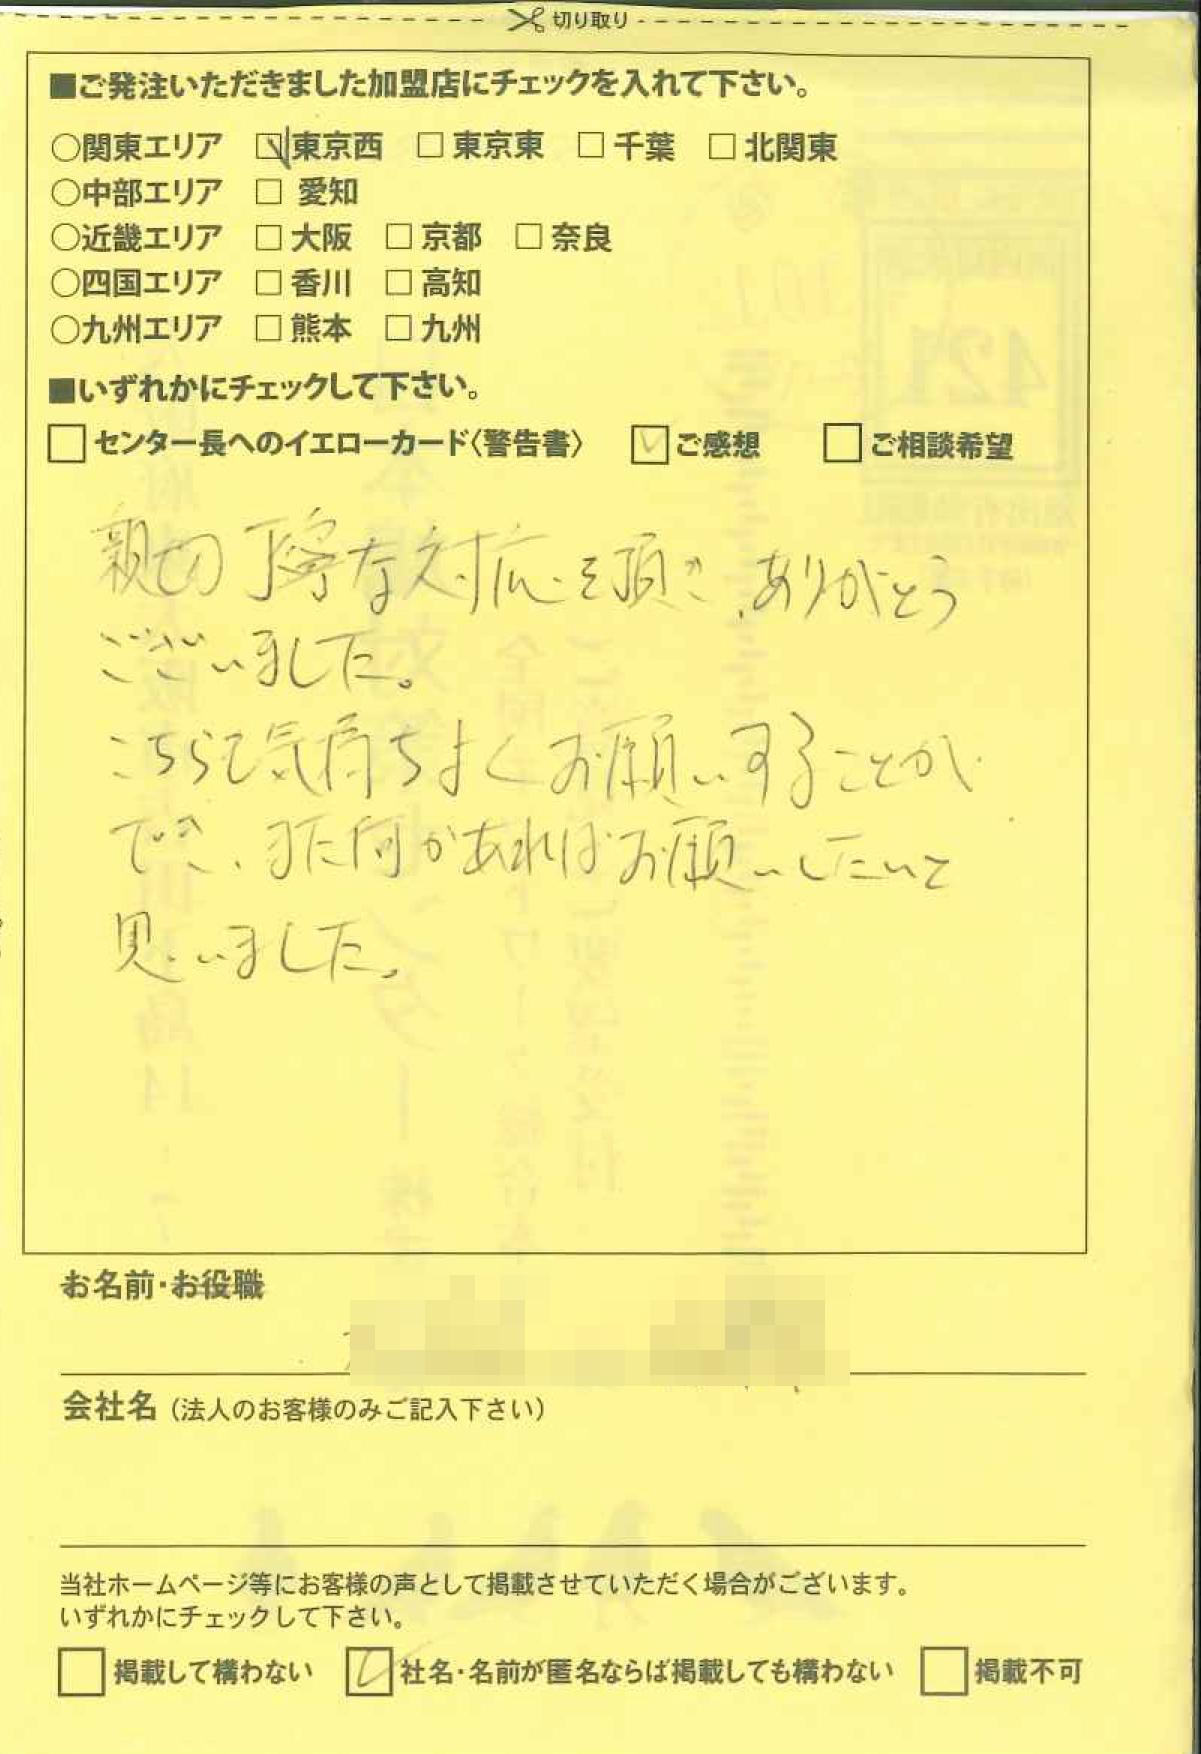 切り取り
■ご発注いただきました加盟店にチェックを入れて下さい。
○関東エリア ☑東京西 □東京東 □千葉 □北関東
○中部エリア □愛知
○近畿エリア □大阪 □京都 □奈良
○四国エリア □香川 □高知
○九州エリア □熊本 □九州
■いずれかにチェックして下さい。
□センター長へのイエローカード〈警告書〉 ☑ご感想 □ご相談希望
親切丁寧な対応を頂き、ありがとう
ございました。
こちらも気持ちよくお願いすることが
でき、また何かあればお願いしたいと
思いました。
お名前・お役職
会社名(法人のお客様のみご記入下さい)
当社ホームページ等にお客様の声として掲載させていただく場合がございます。
いずれかにチェックして下さい。
□掲載して構わない ☑社名・名前が匿名ならば掲載しても構わない □掲載不可